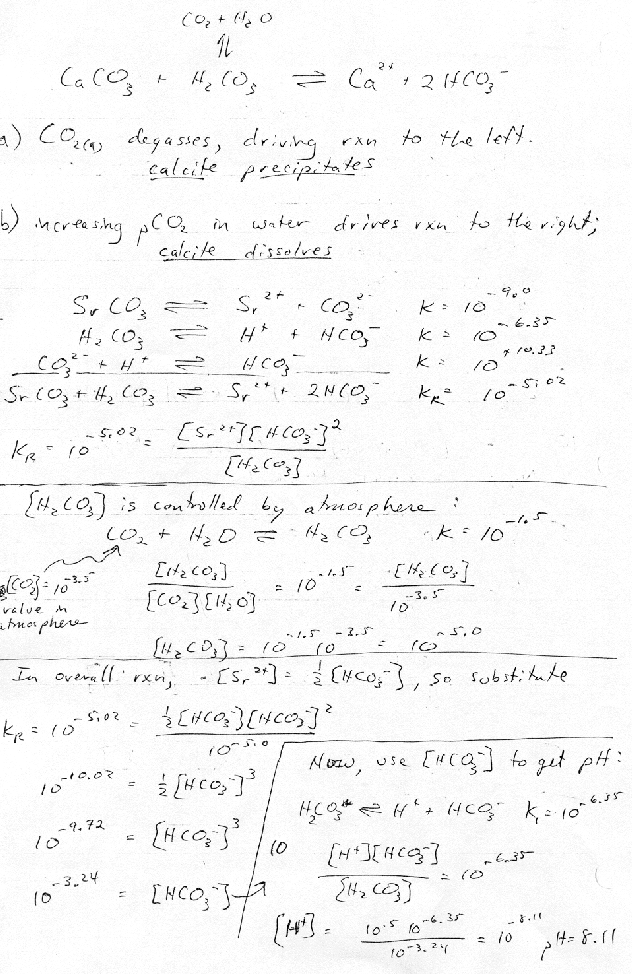 CO₂ + H₂O
⇅
CaCO₃ + H₂CO₃ ⇌ Ca²⁺ + 2 HCO₃⁻
a) CO₂(g) degasses, driving rxn to the left.
calcite precipitates
b) increasing pCO₂ in water drives rxn to the right;
calcite dissolves
SrCO₃ ⇌ Sr²⁺ + CO₃²⁻ K = 10^-9.0
H₂CO₃ ⇌ H⁺ + HCO₃⁻ K = 10^-6.35
CO₃²⁻ + H⁺ ⇌ HCO₃⁻ K = 10^+10.33
SrCO₃ + H₂CO₃ ⇌ Sr²⁺ + 2HCO₃⁻ K_R = 10^-5.02
K_R = 10^-5.02 = [Sr²⁺][HCO₃⁻]² / [H₂CO₃]
[H₂CO₃] is controlled by atmosphere :
CO₂ + H₂O ⇌ H₂CO₃ K = 10^-1.5
[CO₂] = 10^-3.5
value in
atmosphere
[H₂CO₃] / [CO₂][H₂O] = 10^-1.5 = [H₂CO₃] / 10^-3.5
[H₂CO₃] = 10^-1.5 10^-3.5 = 10^-5.0
In overall rxn, [Sr²⁺] = ½ [HCO₃⁻], so substitute
K_R = 10^-5.02 = ½[HCO₃⁻][HCO₃⁻]² / 10^-5.0
10^-10.02 = ½ [HCO₃⁻]³
10^-9.72 = [HCO₃⁻]³
10^-3.24 = [HCO₃⁻]
Now, use [HCO₃⁻] to get pH :
H₂CO₃* ⇌ H⁺ + HCO₃⁻ K₁ = 10^-6.35
10 [H⁺][HCO₃⁻] / [H₂CO₃] = 10^-6.35
[H⁺] = 10^-5 10^-6.35 / 10^-3.24 = 10^-8.11 pH = 8.11